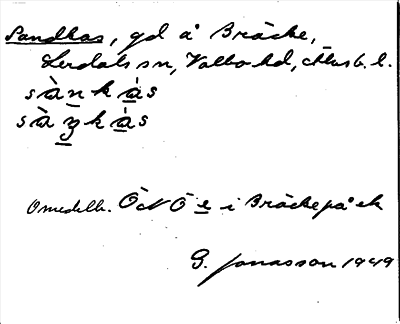 Sandhas, gd å Bräcke,
Lerdals sn, Valbo hd, Älvsb. l.
sànkás
sàŋkás
Omedelb. ÖNÖ i Bräcke på ek
G. Jonasson 1949